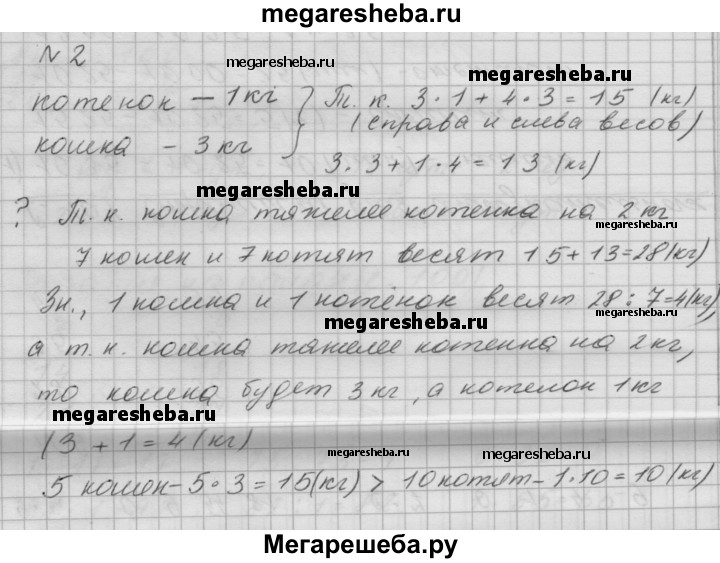 megaresheba.ru
N 2
megaresheba.ru
megaresheba.ru
котенок – 1 кг } Т. к. 3 · 1 + 4 · 3 = 15 (кг)
(справа и слева весов)
кошка – 3 кг 3 · 3 + 1 · 4 = 13 (кг)
megaresheba.ru
megaresheba.ru
megaresheba.ru
? Т. к. кошка тяжелее котенка на 2 кг
megaresheba.ru
7 кошек и 7 котят весят 15 + 13 = 28 (кг)
Зн., 1 кошка и 1 котёнок весят 28 : 7 = 4 (кг),
megaresheba.ru
megaresheba.ru
а т. к. кошка тяжелее котенка на 2 кг,
то кошка будет 3 кг, а котенок 1 кг
megaresheba.ru
(3 + 1 = 4 (кг)
megaresheba.ru
megaresheba.ru
5 кошек – 5 · 3 = 15 (кг) > 10 котят – 1 · 10 = 10 (кг)
megaresheba.ru
Мегарешеба.ру